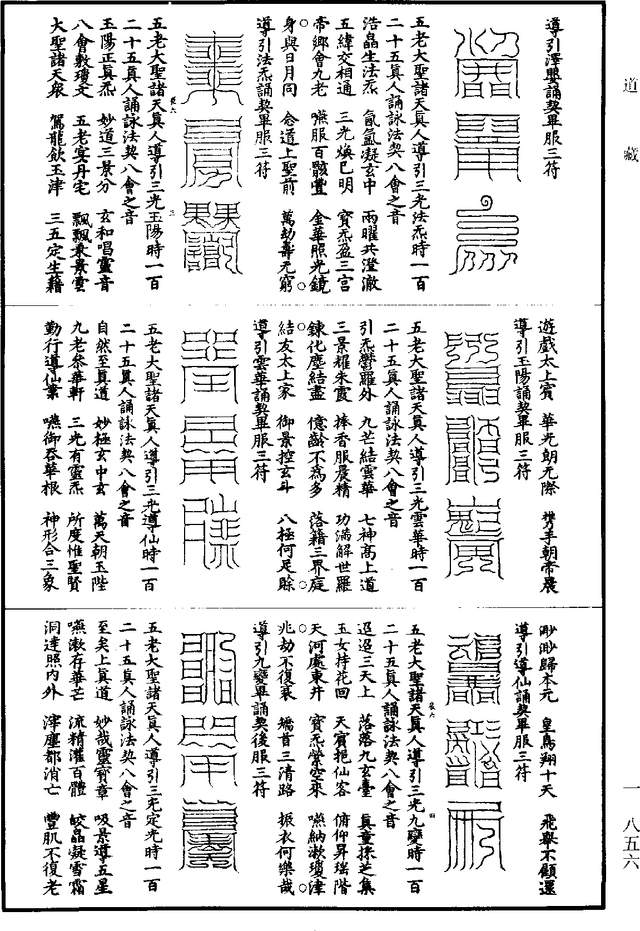 道藏
導引澤嬰誦契畢服三符
五老大聖諸天真人導引三光法炁時一百
二十五真人誦詠法契八會之音
浩晶生法炁　氤氳凝玄中　兩曜共澄澈
五緯交相通　三光煥已明　寶炁盈三宫
帝鄉會九老　嚥服百骸豐　金華照光鏡
身與日月同　合道上聖前　萬劫壽无窮
導引法炁誦契畢服三符
五老大聖諸天真人導引三光玉陽時一百
二十五真人誦詠法契八會之音
玉陽正真炁　妙道三景分　玄和唱靈音
八會敷瓊文　五老宴丹宅　飄飄乘景雲
大聖諸天衆　駕龍飲玉津　三五定生籍
遊戲太上賓　華光朗元際　携手朝帝晨
導引玉陽誦契畢服三符
五老大聖諸天真人導引三光雲華時一百
二十五真人誦詠法契八會之音
引炁鬱羅外　九芒結雲華　七神高上道
三景耀朱霞　捧香服晨精　功滿解世羅
鍊化塵結盡　億齡不爲多　落籍三界庭
結友太上家　御景控玄斗　八極何足賒
導引雲華誦契畢服三符
五老大聖諸天真人導引三光導仙時一百
二十五真人誦詠法契八會之音
自然至真道　妙極玄中玄　萬天朝玉陛
九老參華軒　三光有靈炁　所度惟聖賢
勤行導仙業　嚥御吞華根　神形合三象
眇眇歸本元　皇鳥翔十天　飛舉不顧還
導引導仙誦契畢服三符
五老大聖諸天真人導引三光九變時一百
二十五真人誦詠法契八會之音
迢迢三天上　落落九玄臺　真童採芝集
玉女持花回　天賓挹仙客　俯仰昇瑶階
天河處東井　寶炁縈空來　嚥納漱瓊津
兆劫不復衰　矯首三清路　振衣何樂哉
導引九變畢誦契後服三符
五老大聖諸天真人導引三光定光時一百
二十五真人誦詠法契八會之音
至矣上真道　妙哉靈寶章　吸景導五星
嚥漱存華芒　流精灌百體　皎晶凝雪霜
洞達照内外　滓塵都消亡　豐肌不復老
一八五六